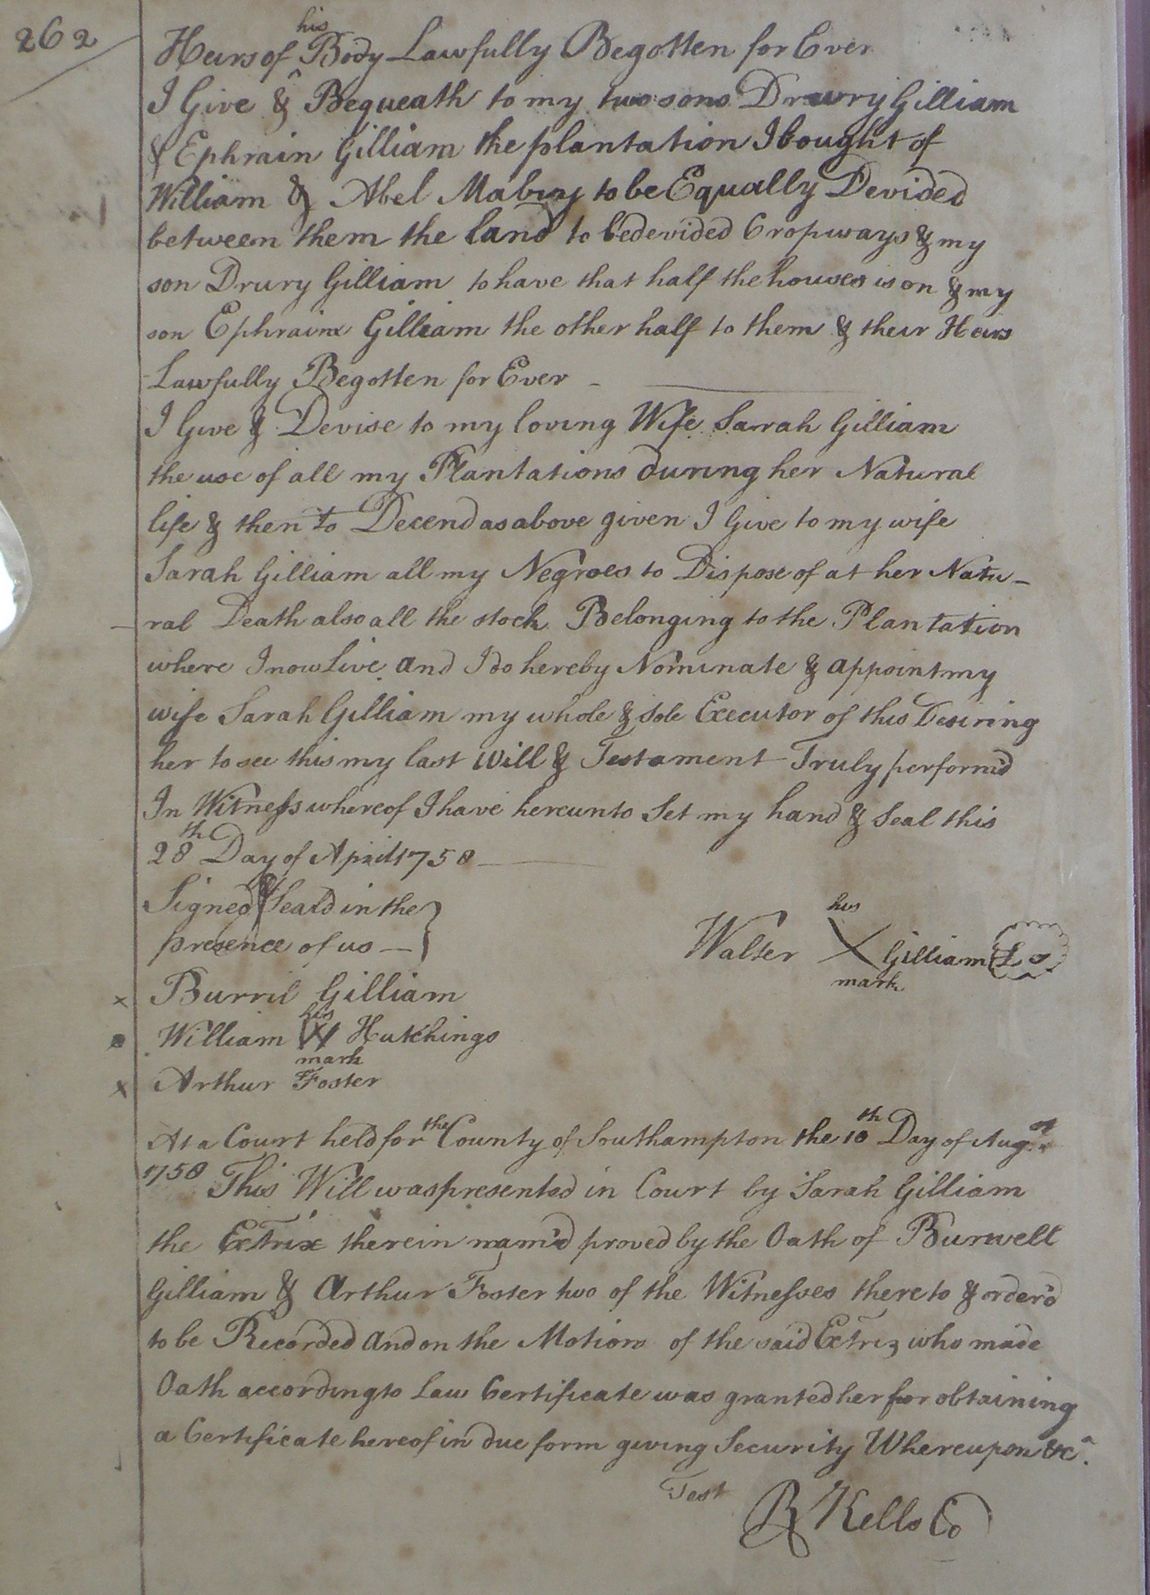 262
Heirs of his Body Lawfully Begotten for Ever
I Give & Bequeath to my two sons Drewry Gilliam
& Ephraim Gilliam the plantation I bought of
William & Abel Mabry to be Equally Devided
between them the land to be devided Cropways & my
son Drury Gilliam to have that half the houses is on & my
son Ephraim Gilliam the other half to them & their Heirs
Lawfully Begotten for Ever
I Give & Devise to my loving Wife Sarah Gilliam
the use of all my Plantations during her Natural
life & then to Decend as above given I Give to my wife
Sarah Gilliam all my Negroes to Dispose of at her Natu-
ral Death also all the stock Belonging to the Plantation
where I now Live and I do hereby Nominate & appoint my
wife Sarah Gilliam my whole & sole Executor of this Desiring
her to see this my last Will & Testament Truly perform'd
In Witness whereof I have hereunto Set my hand & Seal this
28th Day of April 1758
Signed & Seal'd in the
presence of us
Walter his X mark Gilliam LS
Burril Gilliam
William his W mark Hutchings
Arthur Foster
At a Court held for the County of Southampton the 10th Day of Augst
1758 This Will was presented in Court by Sarah Gilliam
the Extrix therein nam'd proved by the Oath of Burwell
Gilliam & Arthur Foster two of the Witnesses thereto & order'd
to be Recorded and on the Motion of the said Extrix who made
Oath according to Law Certificate was granted her for obtaining
a Certificate hereof in due form giving Security Whereupon &ca.
Test
R Kello Co